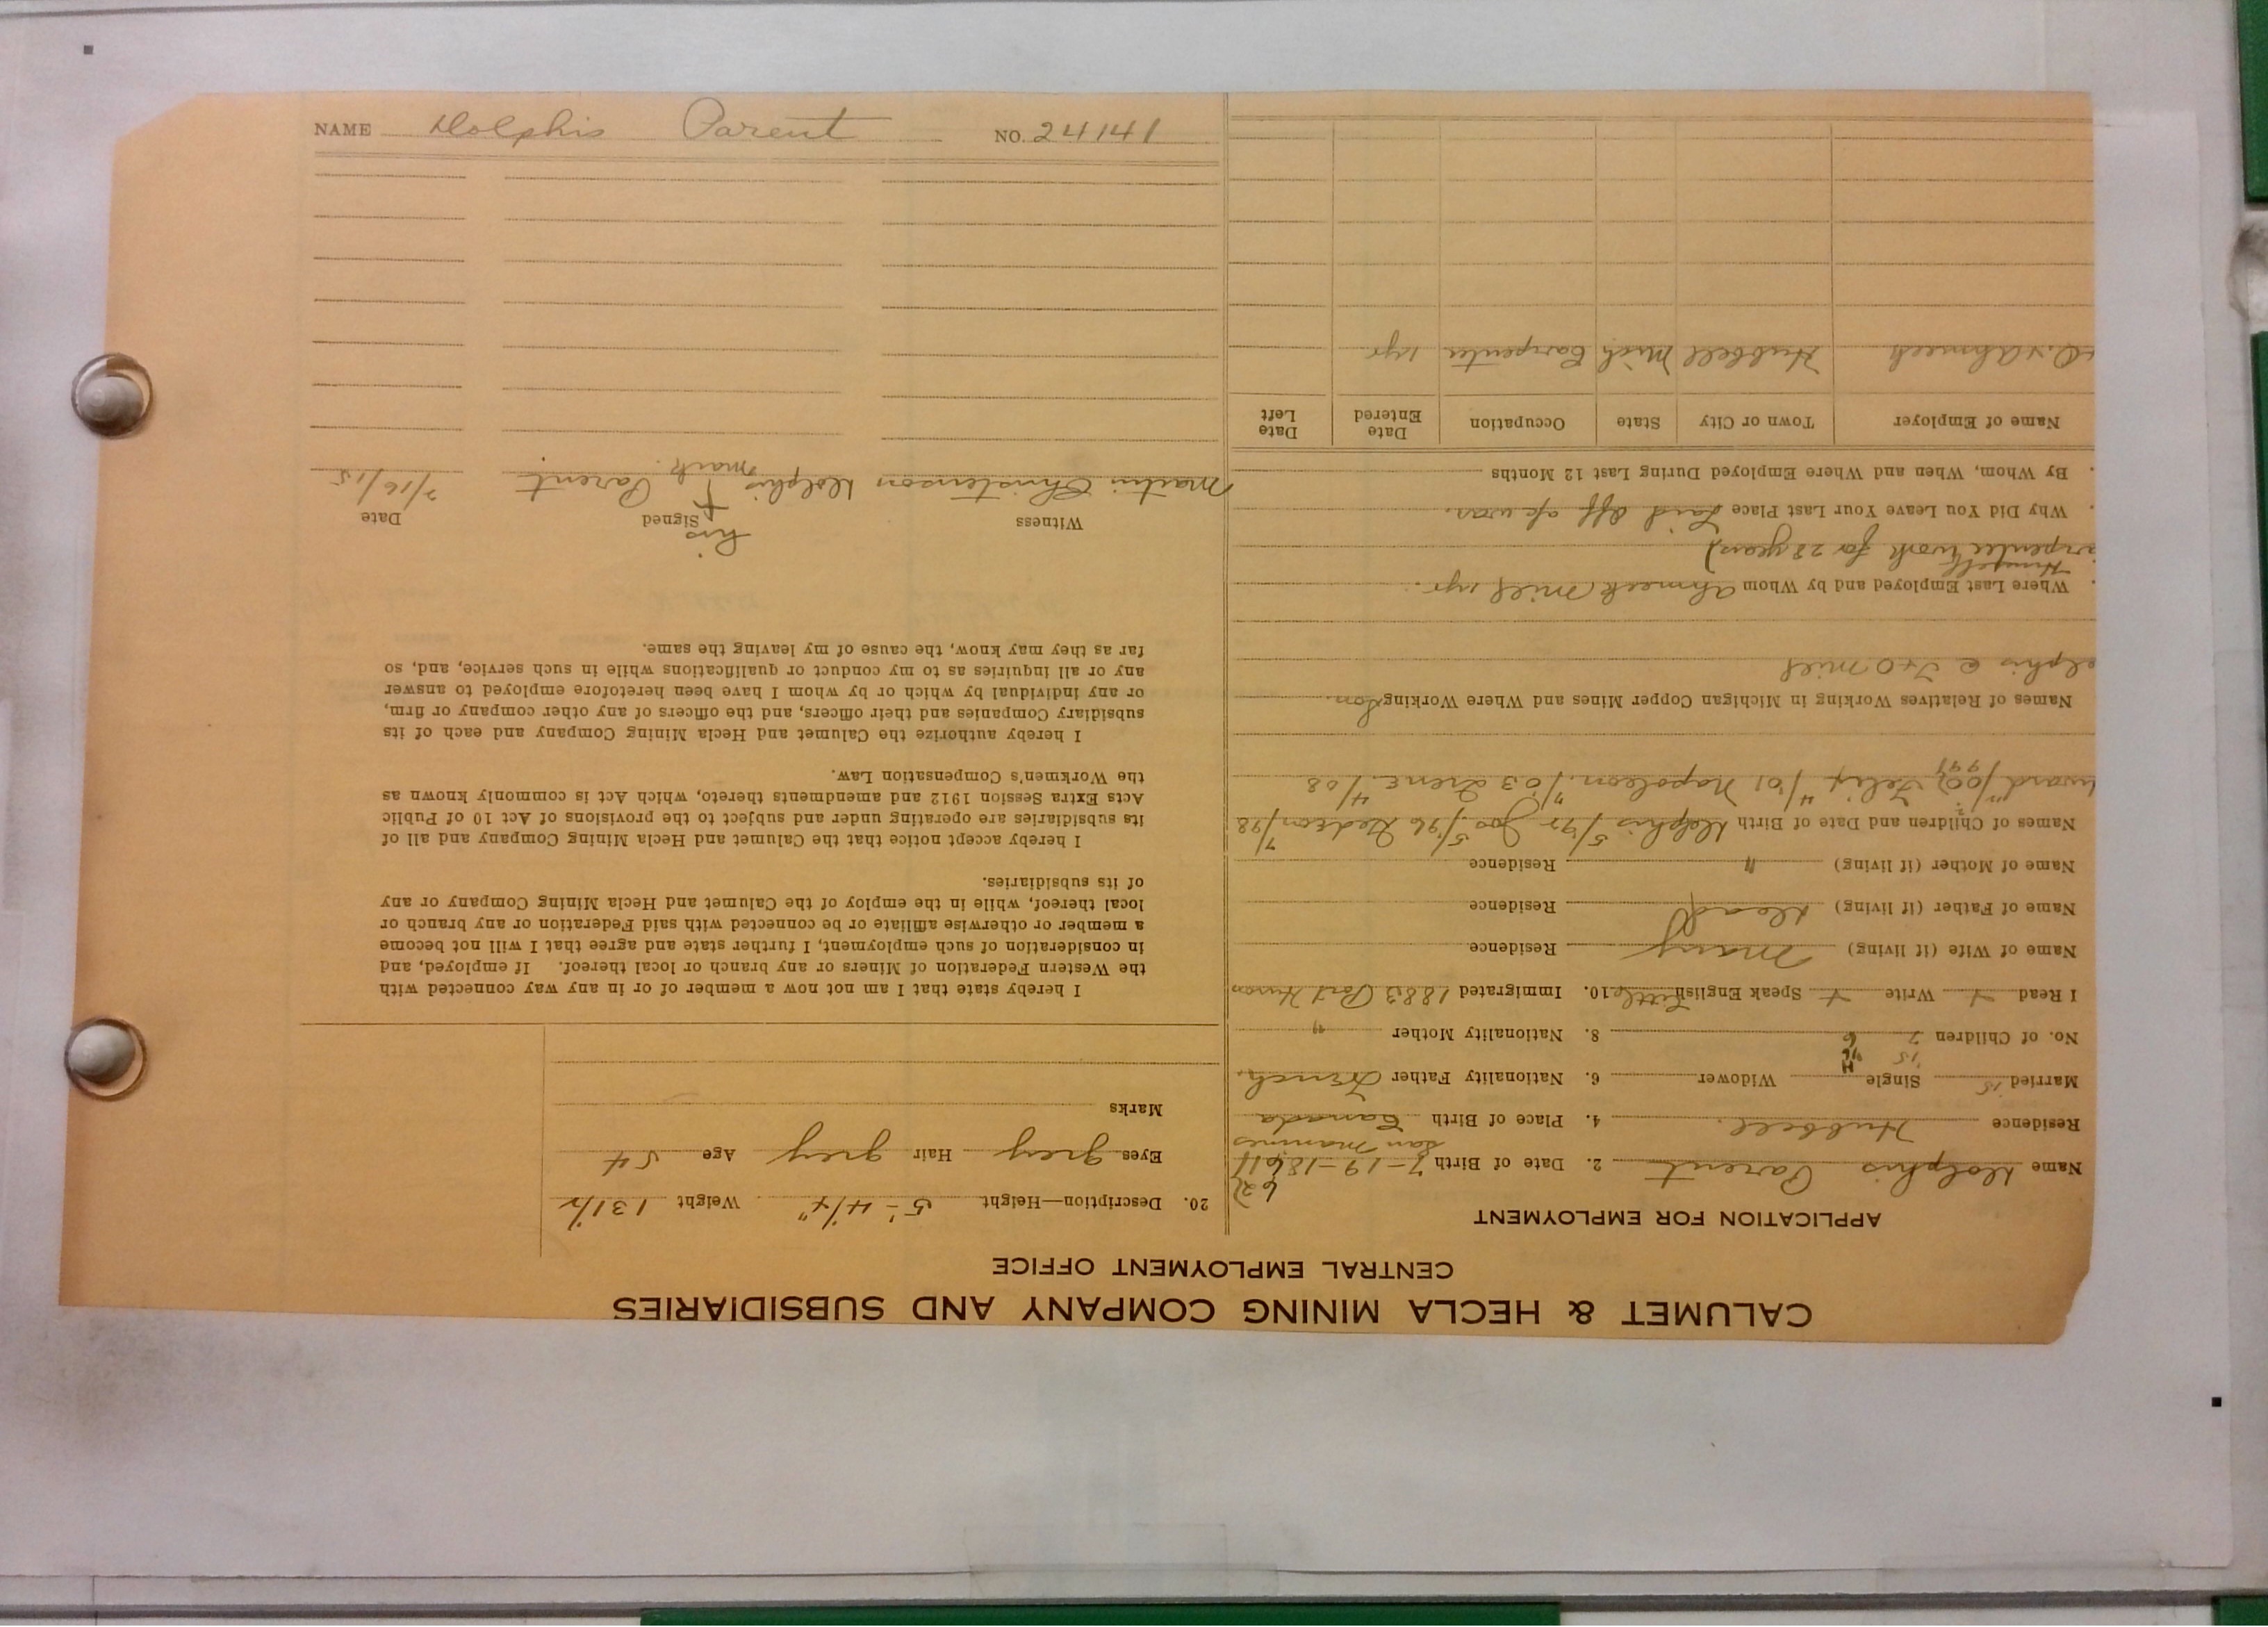 CALUMET & HECLA MINING COMPANY AND SUBSIDIARIES
CENTRAL EMPLOYMENT OFFICE
APPLICATION FOR EMPLOYMENT
Name Dolphis Parent 2. Date of Birth 7-19-1861
Residence Hubbell. 4. Place of Birth Canada
Married 15 Single Widower 6. Nationality Father French.
No. of Children 7 6 8. Nationality Mother "
I Read + Write + Speak English Little 10. Immigrated 1883 Port Huron
Name of Wife (if living) Mary Residence
Name of Father (if living) Dead Residence
Name of Mother (if living) " Residence
Names of Children and Date of Birth Dolphis 5/95 Joo 5/96 Gedeon 7/98
Felix 4/01 Napoleon 7/03 Irene 4/08
Names of Relatives Working in Michigan Copper Mines and Where Working Son.
olphis @ T+O Mill
Where Last Employed and by Whom Ahmeek Mill 1 yr.
Himself
arpenter work for 28 years)
Why Did You Leave Your Last Place Laid off ap was.
By Whom, When and Where Employed During Last 12 Months
Name of Employer Town or City State Occupation Date Entered Date Left
Ahmeek Hubbell Mich Carpenter 1 yr.
20. Description—Height 5'-4 1/4" Weight 131 1/2
Eyes grey Hair grey Age 54
Marks
I hereby state that I am not now a member of or in any way connected with
the Western Federation of Miners or any branch or local thereof. If employed, and
in consideration of such employment, I further state and agree that I will not become
a member or otherwise affiliate or be connected with said Federation or any branch or
local thereof, while in the employ of the Calumet and Hecla Mining Company or any
of its subsidiaries.
I hereby accept notice that the Calumet and Hecla Mining Company and all of
its subsidiaries are operating under and subject to the provisions of Act 10 of Public
Acts Extra Session 1912 and amendments thereto, which Act is commonly known as
the Workmen's Compensation Law.
I hereby authorize the Calumet and Hecla Mining Company and each of its
subsidiary Companies and their officers, and the officers of any other company or firm,
or any individual by which or by whom I have been heretofore employed to answer
any or all inquiries as to my conduct or qualifications while in such service, and, so
far as they may know, the cause of my leaving the same.
Witness Signed Date
his
Martin Christenson Dolphis + Parent 7/16/15
mark.
NAME Dolphis Parent NO. 24141